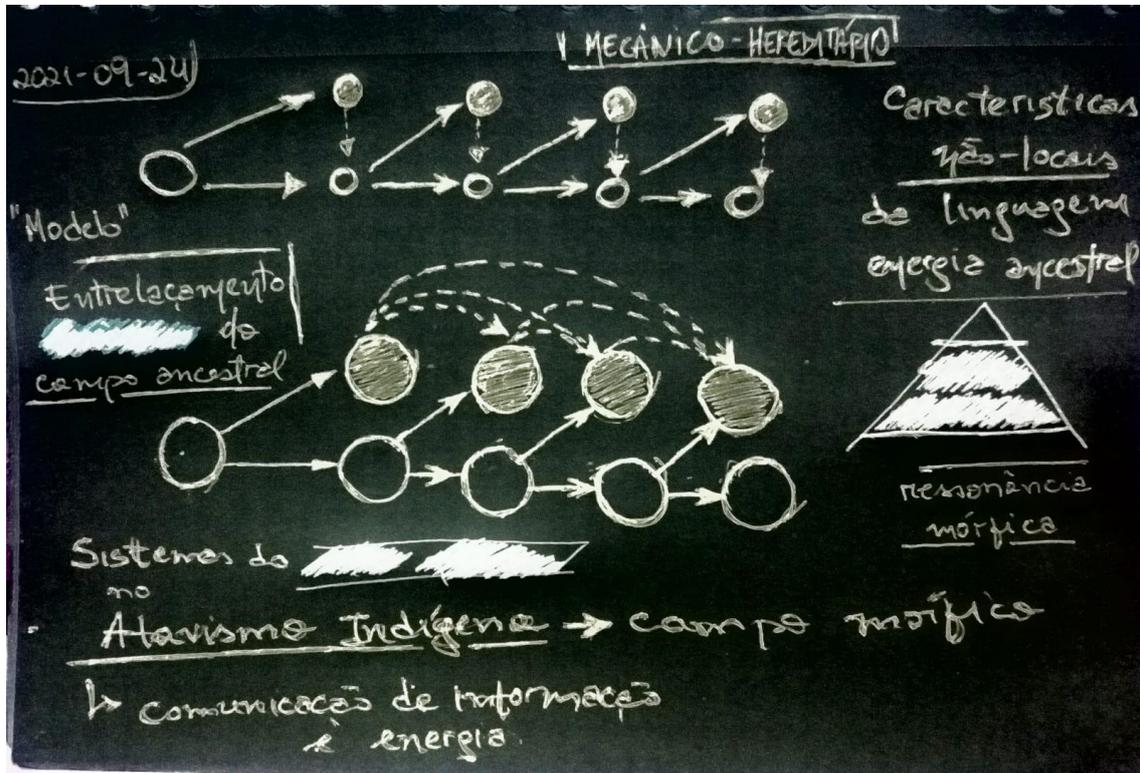 MECÂNICO-HEREDITÁRIO
2021-09-24
Características
não-locais
de linguagem
energia ancestral
"Modelo"
Entrelaçamento
do
campo ancestral
ressonância
mórfica
Sistemas do
no
Atavismo Indígena → campo mórfico
↳ comunicação de informação
e energia.